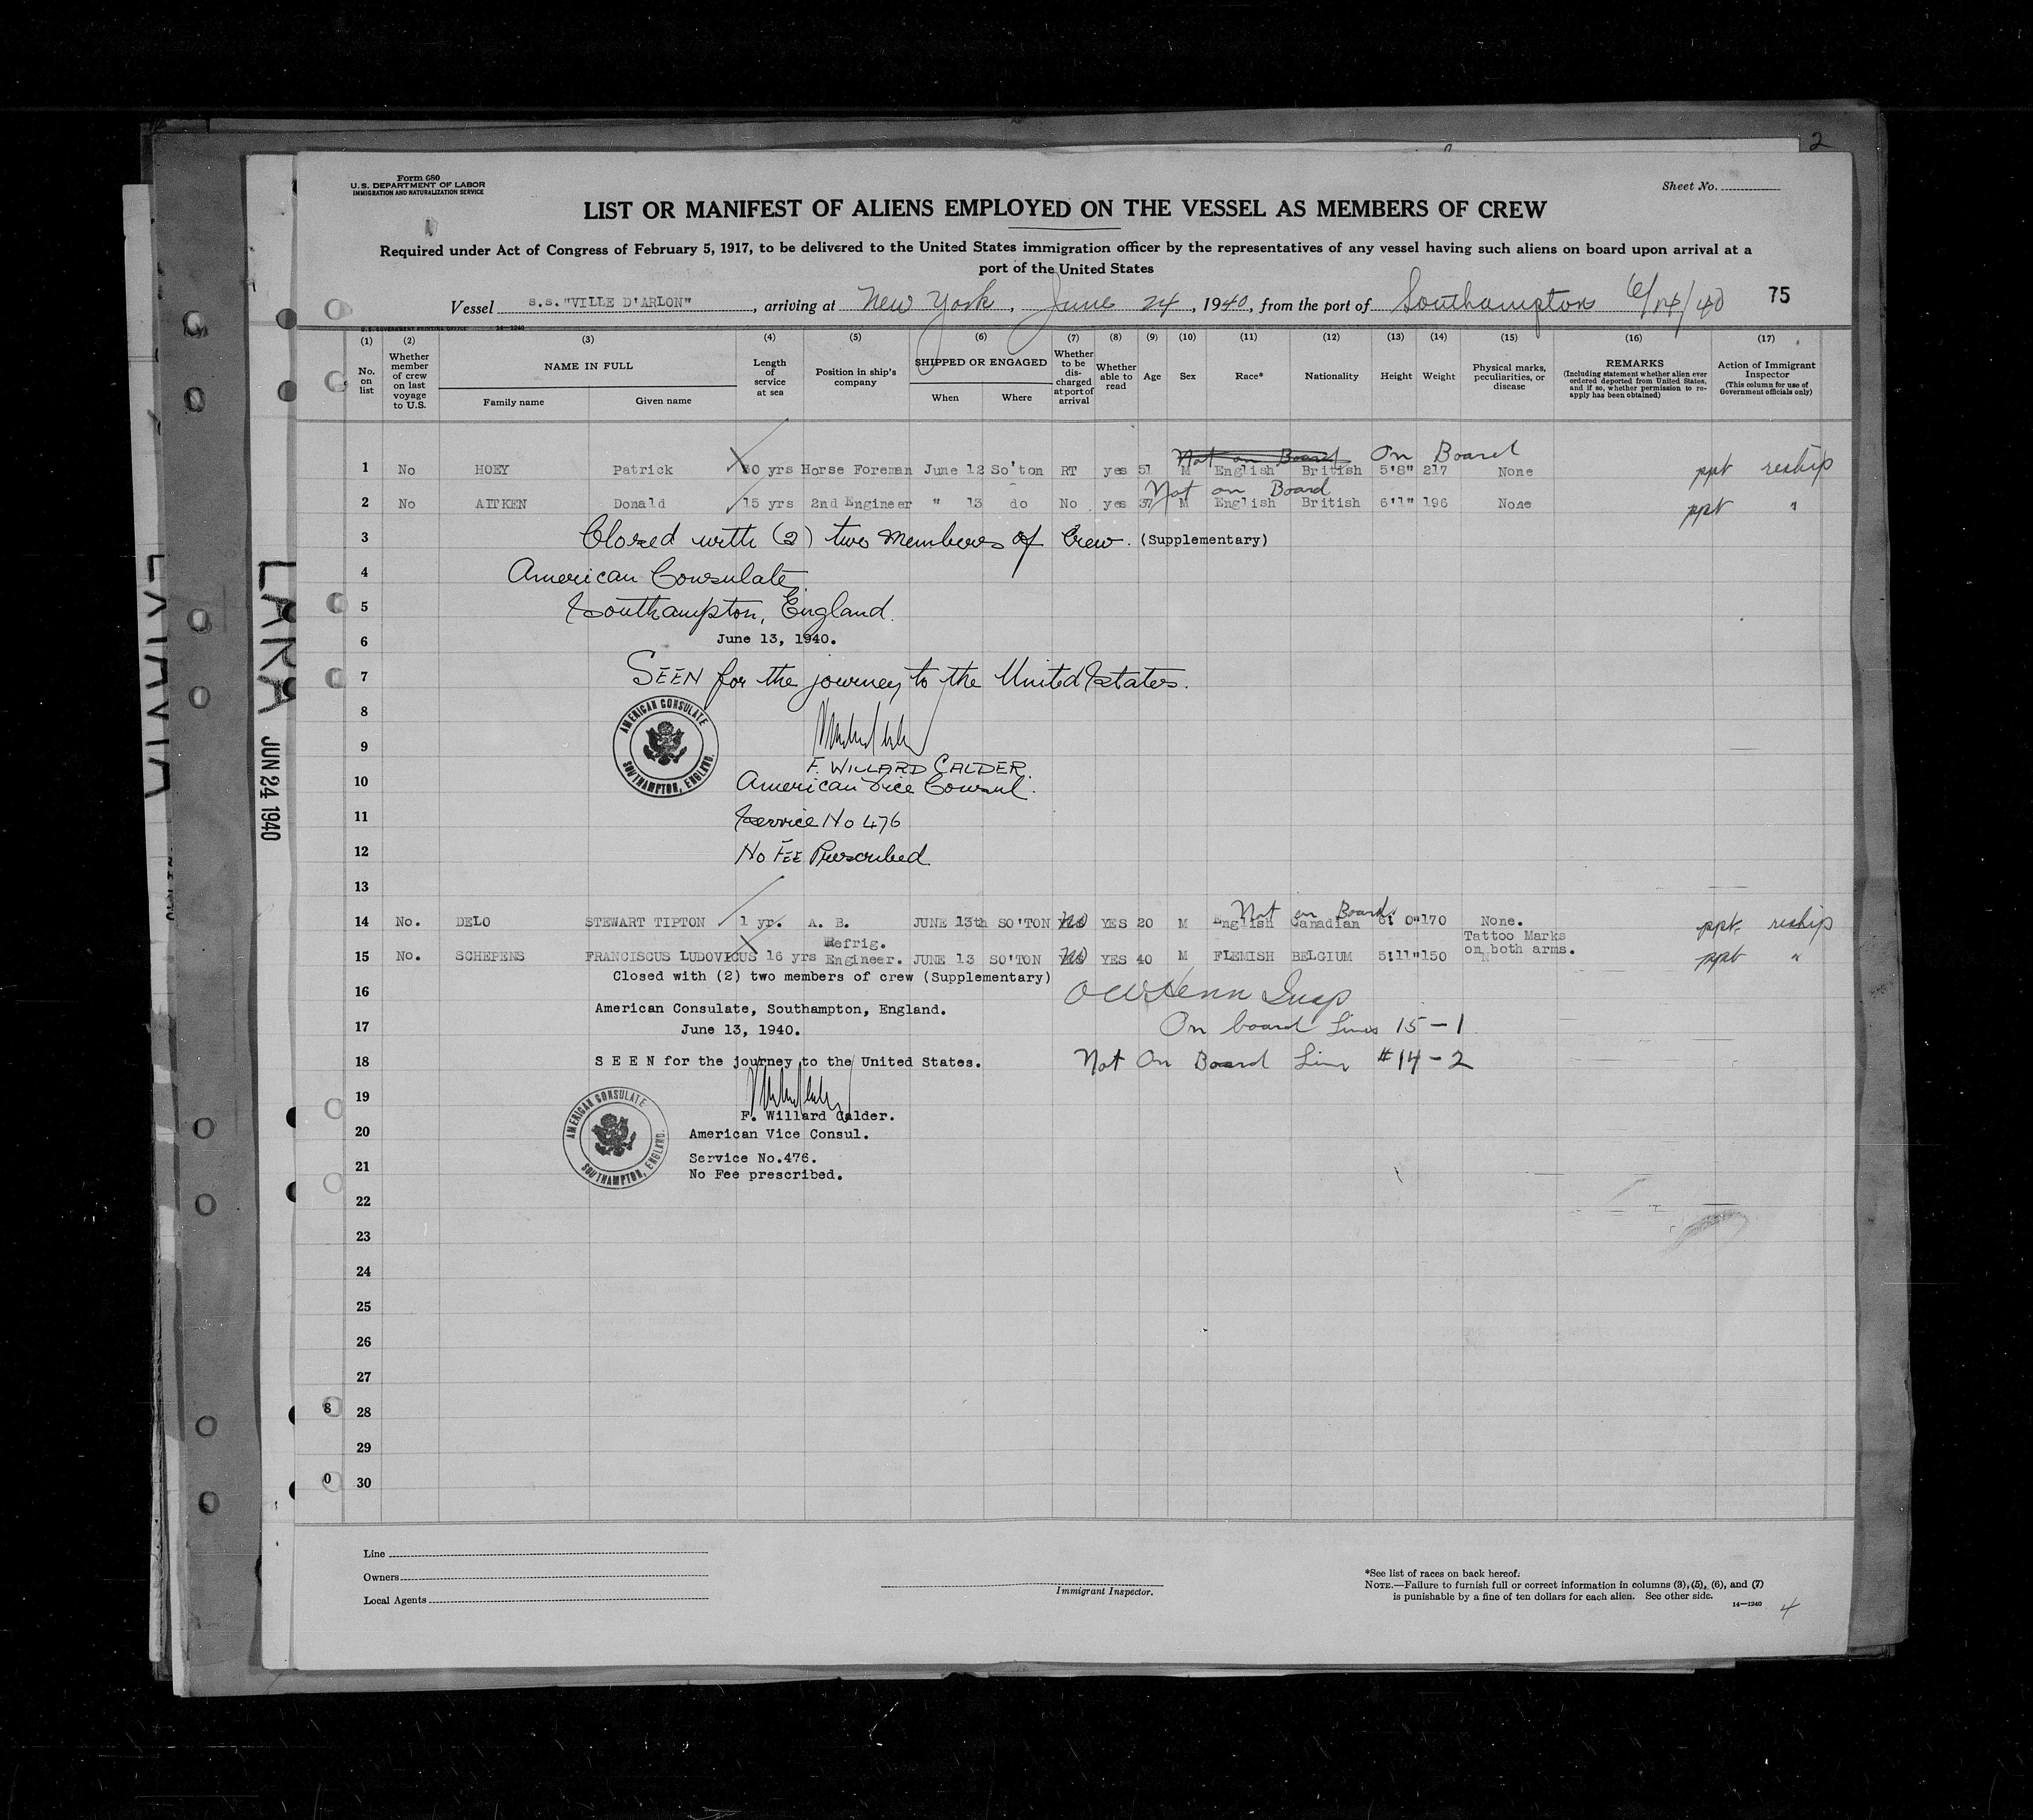 2
Form 680
U.S. DEPARTMENT OF LABOR
IMMIGRATION AND NATURALIZATION SERVICE
Sheet No.
LIST OR MANIFEST OF ALIENS EMPLOYED ON THE VESSEL AS MEMBERS OF CREW
Required under Act of Congress of February 5, 1917, to be delivered to the United States immigration officer by the representatives of any vessel having such aliens on board upon arrival at a
port of the United States
Vessel s.s."VILLE D'ARLON", arriving at New York, June 24, 1940, from the port of Southampton 6/14/40 75
U.S. GOVERNMENT PRINTING OFFICE 14-1240
(1) (2) (3) (4) (5) (6) (7) (8) (9) (10) (11) (12) (13) (14) (15) (16) (17)
No. on list
Whether member of crew on last voyage to U.S.
NAME IN FULL
Family name Given name
Length of service at sea
Position in ship's company
SHIPPED OR ENGAGED
When Where
Whether to be discharged at port of arrival
Whether able to read
Age
Sex
Race*
Nationality
Height
Weight
Physical marks, peculiarities, or disease
REMARKS
(Including statement whether alien ever ordered deported from United States, and if so, whether permission to reapply has been obtained)
Action of Immigrant Inspector
(This column for use of Government officials only)
Not on Board On Board
1 No HOEY Patrick 30 yrs Horse Foreman June 12 So'ton RT yes 51 M English British 5'8" 217 None ppt reship
Not on Board
2 No AITKEN Donald 15 yrs 2nd Engineer " 13 do No yes 37 M English British 6'1" 196 None ppt "
3 Closed with (2) two members of Crew. (Supplementary)
4 American Consulate
5 Southampton, England.
6 June 13, 1940.
7 SEEN for the journey to the United States.
8
AMERICAN CONSULATE SOUTHAMPTON, ENGLAND.
9
F. WILLARD CALDER.
10 American Vice Consul.
11 Service No 476
12 No FEE Prescribed
13
Not on Board
14 No. DELO STEWART TIPTON 1 yr. A. B. JUNE 13th SO'TON No YES 20 M English Canadian 6' 0" 170 None. ppt reship
15 No. SCHEPENS FRANCISCUS LUDOVICUS 16 yrs Refrig. Engineer. JUNE 13 SO'TON No YES 40 M FLEMISH BELGIUM 5'11" 150 Tattoo Marks on both arms. ppt "
Closed with (2) two members of crew (Supplementary)
16
American Consulate, Southampton, England.
17 June 13, 1940. On board Lines 15-1
18 S E E N for the journey to the United States. Not On Board Line #14-2
19
AMERICAN CONSULATE SOUTHAMPTON, ENGLAND.
F. Willard Calder.
20 American Vice Consul.
Service No.476.
21 No Fee prescribed.
22
23
24
25
26
27
8 28
29
0 30
Line
Owners
Local Agents
Immigrant Inspector.
*See list of races on back hereof.
NOTE.—Failure to furnish full or correct information in columns (3), (5), (6), and (7)
is punishable by a fine of ten dollars for each alien. See other side.
14-1240 4
LARA
JUN 24 1940